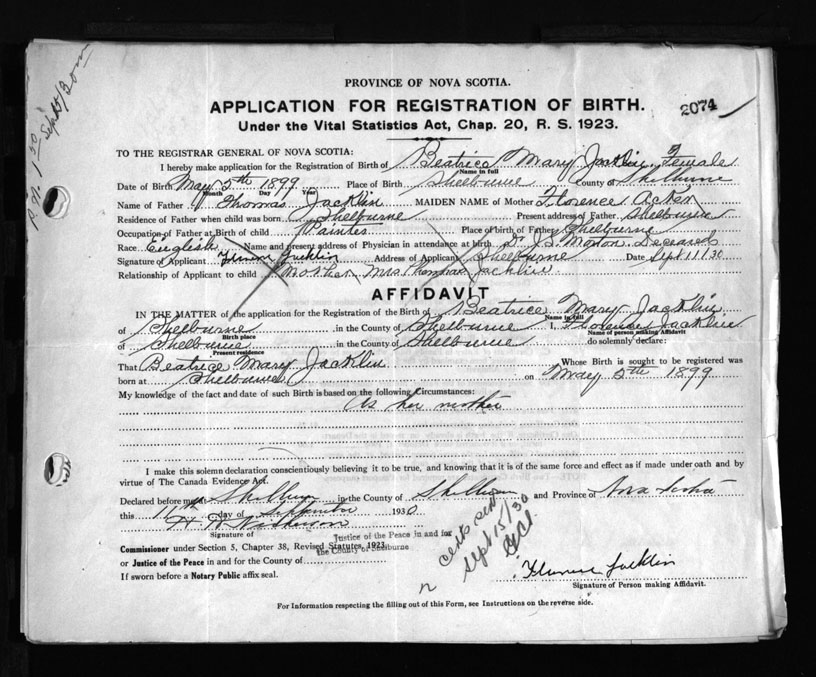 PROVINCE OF NOVA SCOTIA.
APPLICATION FOR REGISTRATION OF BIRTH. 2074
Under the Vital Statistics Act, Chap. 20, R. S. 1923.
TO THE REGISTRAR GENERAL OF NOVA SCOTIA:
I hereby make application for the Registration of Birth of Beatrice Mary Jacklin Female
Name in full
Date of Birth May 5th 1899 Place of Birth Shelburne County of Shelburne
Month Day Year
Name of Father Thomas Jacklin MAIDEN NAME of Mother Florence Acker
Residence of Father when child was born Shelburne Present address of Father Shelburne
Occupation of Father at Birth of child Painter Place of birth of Father Shelburne
Race English Name and present address of Physician in attendance at birth Dr J. Morton Deceased
Signature of Applicant Jacklin Address of Applicant Shelburne Date Sept 11/30
Relationship of Applicant to child Mother Mrs Thomas Jacklin
AFFIDAVIT
IN THE MATTER of the application for the Registration of the Birth of Beatrice Mary Jacklin
Name in full
of Shelburne in the County of Shelburne I, Florence Jacklin
Birth place Name of person making Affidavit
of Shelburne in the County of Shelburne do solemnly declare:
Present residence
That Beatrice Mary Jacklin Whose Birth is sought to be registered was
born at Shelburne on May 5th 1899
My knowledge of the fact and date of such Birth is based on the following Circumstances:
As her mother
I make this solemn declaration conscientiously believing it to be true, and knowing that it is of the same force and effect as if made under oath and by
virtue of The Canada Evidence Act.
Declared before me at Shelburne in the County of Shelburne and Province of Nova Scotia
this 11th day of September 1930.
Signature of
Justice of the Peace in and for
the County of Shelburne
Commissioner under Section 5, Chapter 38, Revised Statutes, 1923
or Justice of the Peace in and for the County of
If sworn before a Notary Public affix seal.
Sept 15/30
Florence Jacklin
Signature of Person making Affidavit.
For Information respecting the filling out of this Form, see Instructions on the reverse side.